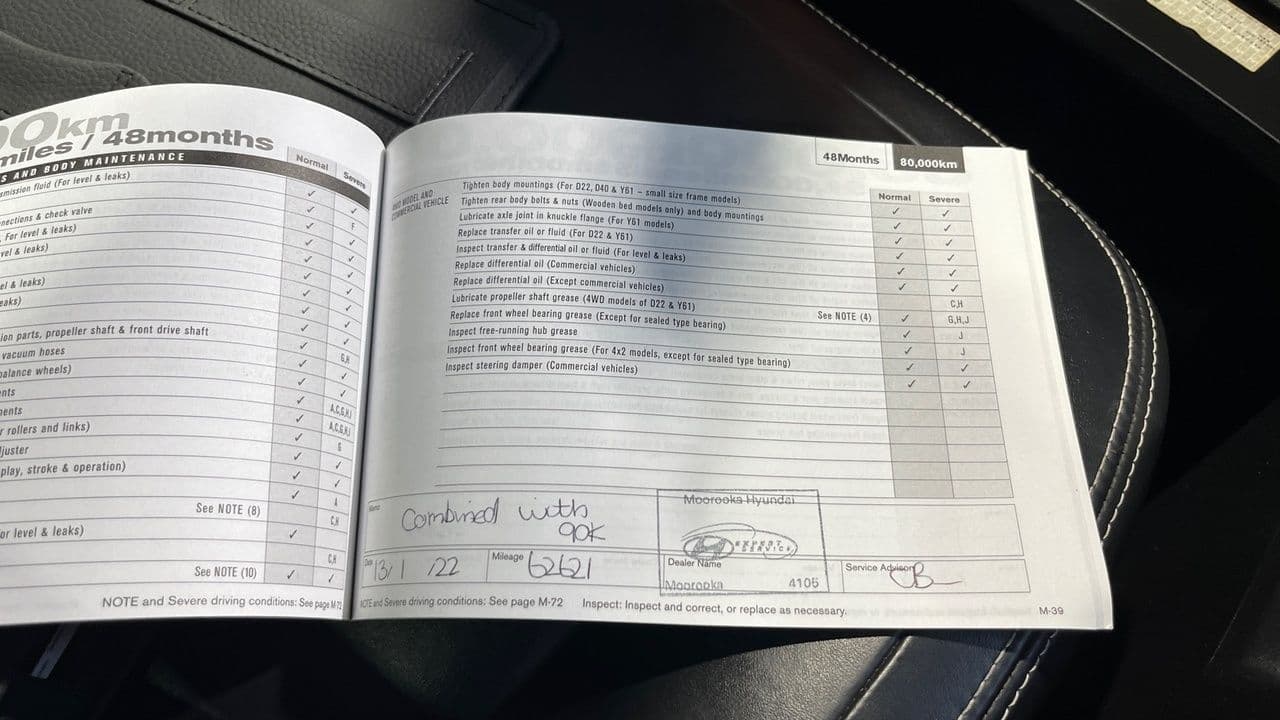 00km
miles / 48months
S AND BODY MAINTENANCE
Normal
Severe
smission fluid (For level & leaks)
nections & check valve
For level & leaks)
vel & leaks)
el & leaks)
eaks)
ion parts, propeller shaft & front drive shaft
vacuum hoses
balance wheels)
ents
ments
r rollers and links)
juster
play, stroke & operation)
See NOTE (8)
or level & leaks)
See NOTE (10)
✓ ✓
✓ F
✓ ✓
G,H
A,C,G,H,I
A,C,G,H,I
G
C,H
C,H
NOTE and Severe driving conditions: See page M-72
48Months 80,000km
Normal Severe
4WD MODEL AND
COMMERCIAL VEHICLE
Tighten body mountings (For D22, D40 & Y61 – small size frame models) ✓ ✓
Tighten rear body bolts & nuts (Wooden bed models only) and body mountings ✓ ✓
Lubricate axle joint in knuckle flange (For Y61 models) ✓ ✓
Replace transfer oil or fluid (For D22 & Y61) ✓ ✓
Inspect transfer & differential oil or fluid (For level & leaks) ✓ ✓
Replace differential oil (Commercial vehicles) ✓ ✓
Replace differential oil (Except commercial vehicles) C,H
Lubricate propeller shaft grease (4WD models of D22 & Y61) See NOTE (4) ✓ G,H,J
Replace front wheel bearing grease (Except for sealed type bearing) ✓ J
Inspect free-running hub grease ✓ J
Inspect front wheel bearing grease (For 4x2 models, except for sealed type bearing) ✓ ✓
Inspect steering damper (Commercial vehicles) ✓ ✓
Memo
Combined with
90K
Moorooka Hyundai
EXPERT
SERVICE
Date 13/1/22
Mileage 62621
Dealer Name
Moorooka 4105
Service Advisor
NOTE and Severe driving conditions: See page M-72
Inspect: Inspect and correct, or replace as necessary.
M-39